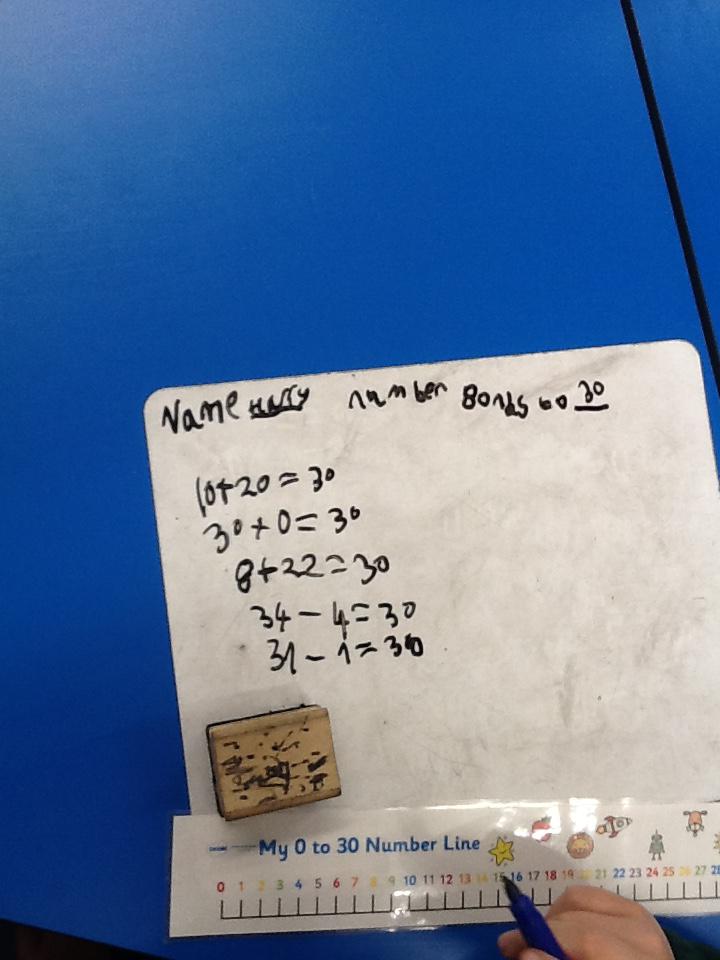 Name Harry number Bonds to 30
10+20=30
30+0=30
8+22=30
34-4=30
31-1=30
My 0 to 30 Number Line
0 1 2 3 4 5 6 7 8 9 10 11 12 13 14 15 16 17 18 19 20 21 22 23 24 25 26 27 28